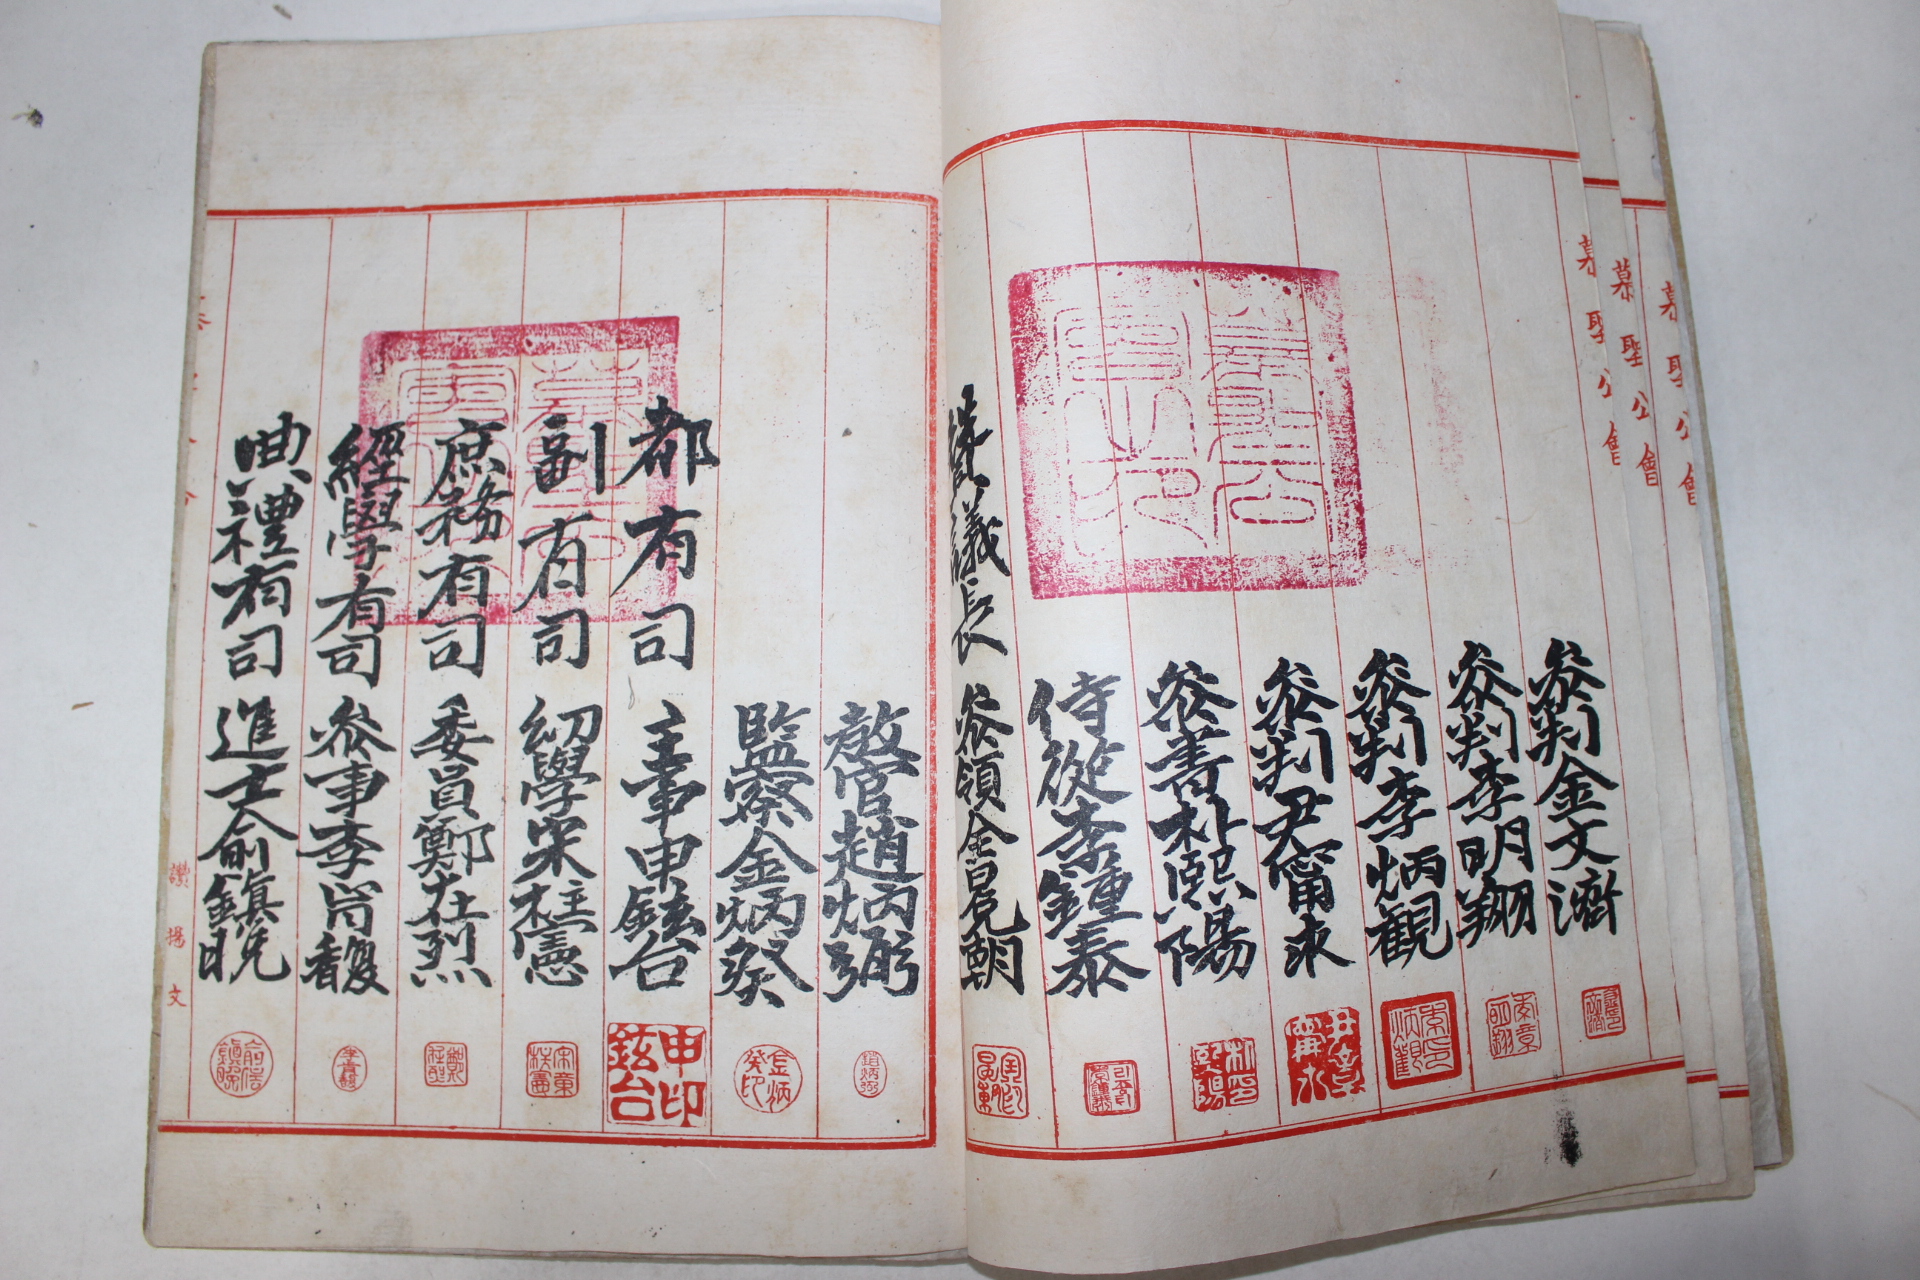 參判金文濟
參判李明翔
參判李炳觀
參判尹甯求
參書朴熙陽
侍從李鍾泰
議長 參領金晃朝
敎官趙炳弼
監察金炳癸
都有司 主事申鉉台
副有司 幼學宋柱憲
庶務有司 委員鄭在烈
經學有司 參事李尙馥
典禮有司 進士兪鎭晩
慕聖公會
慕聖公會
慕聖公會
讚揚文
申鉉台印